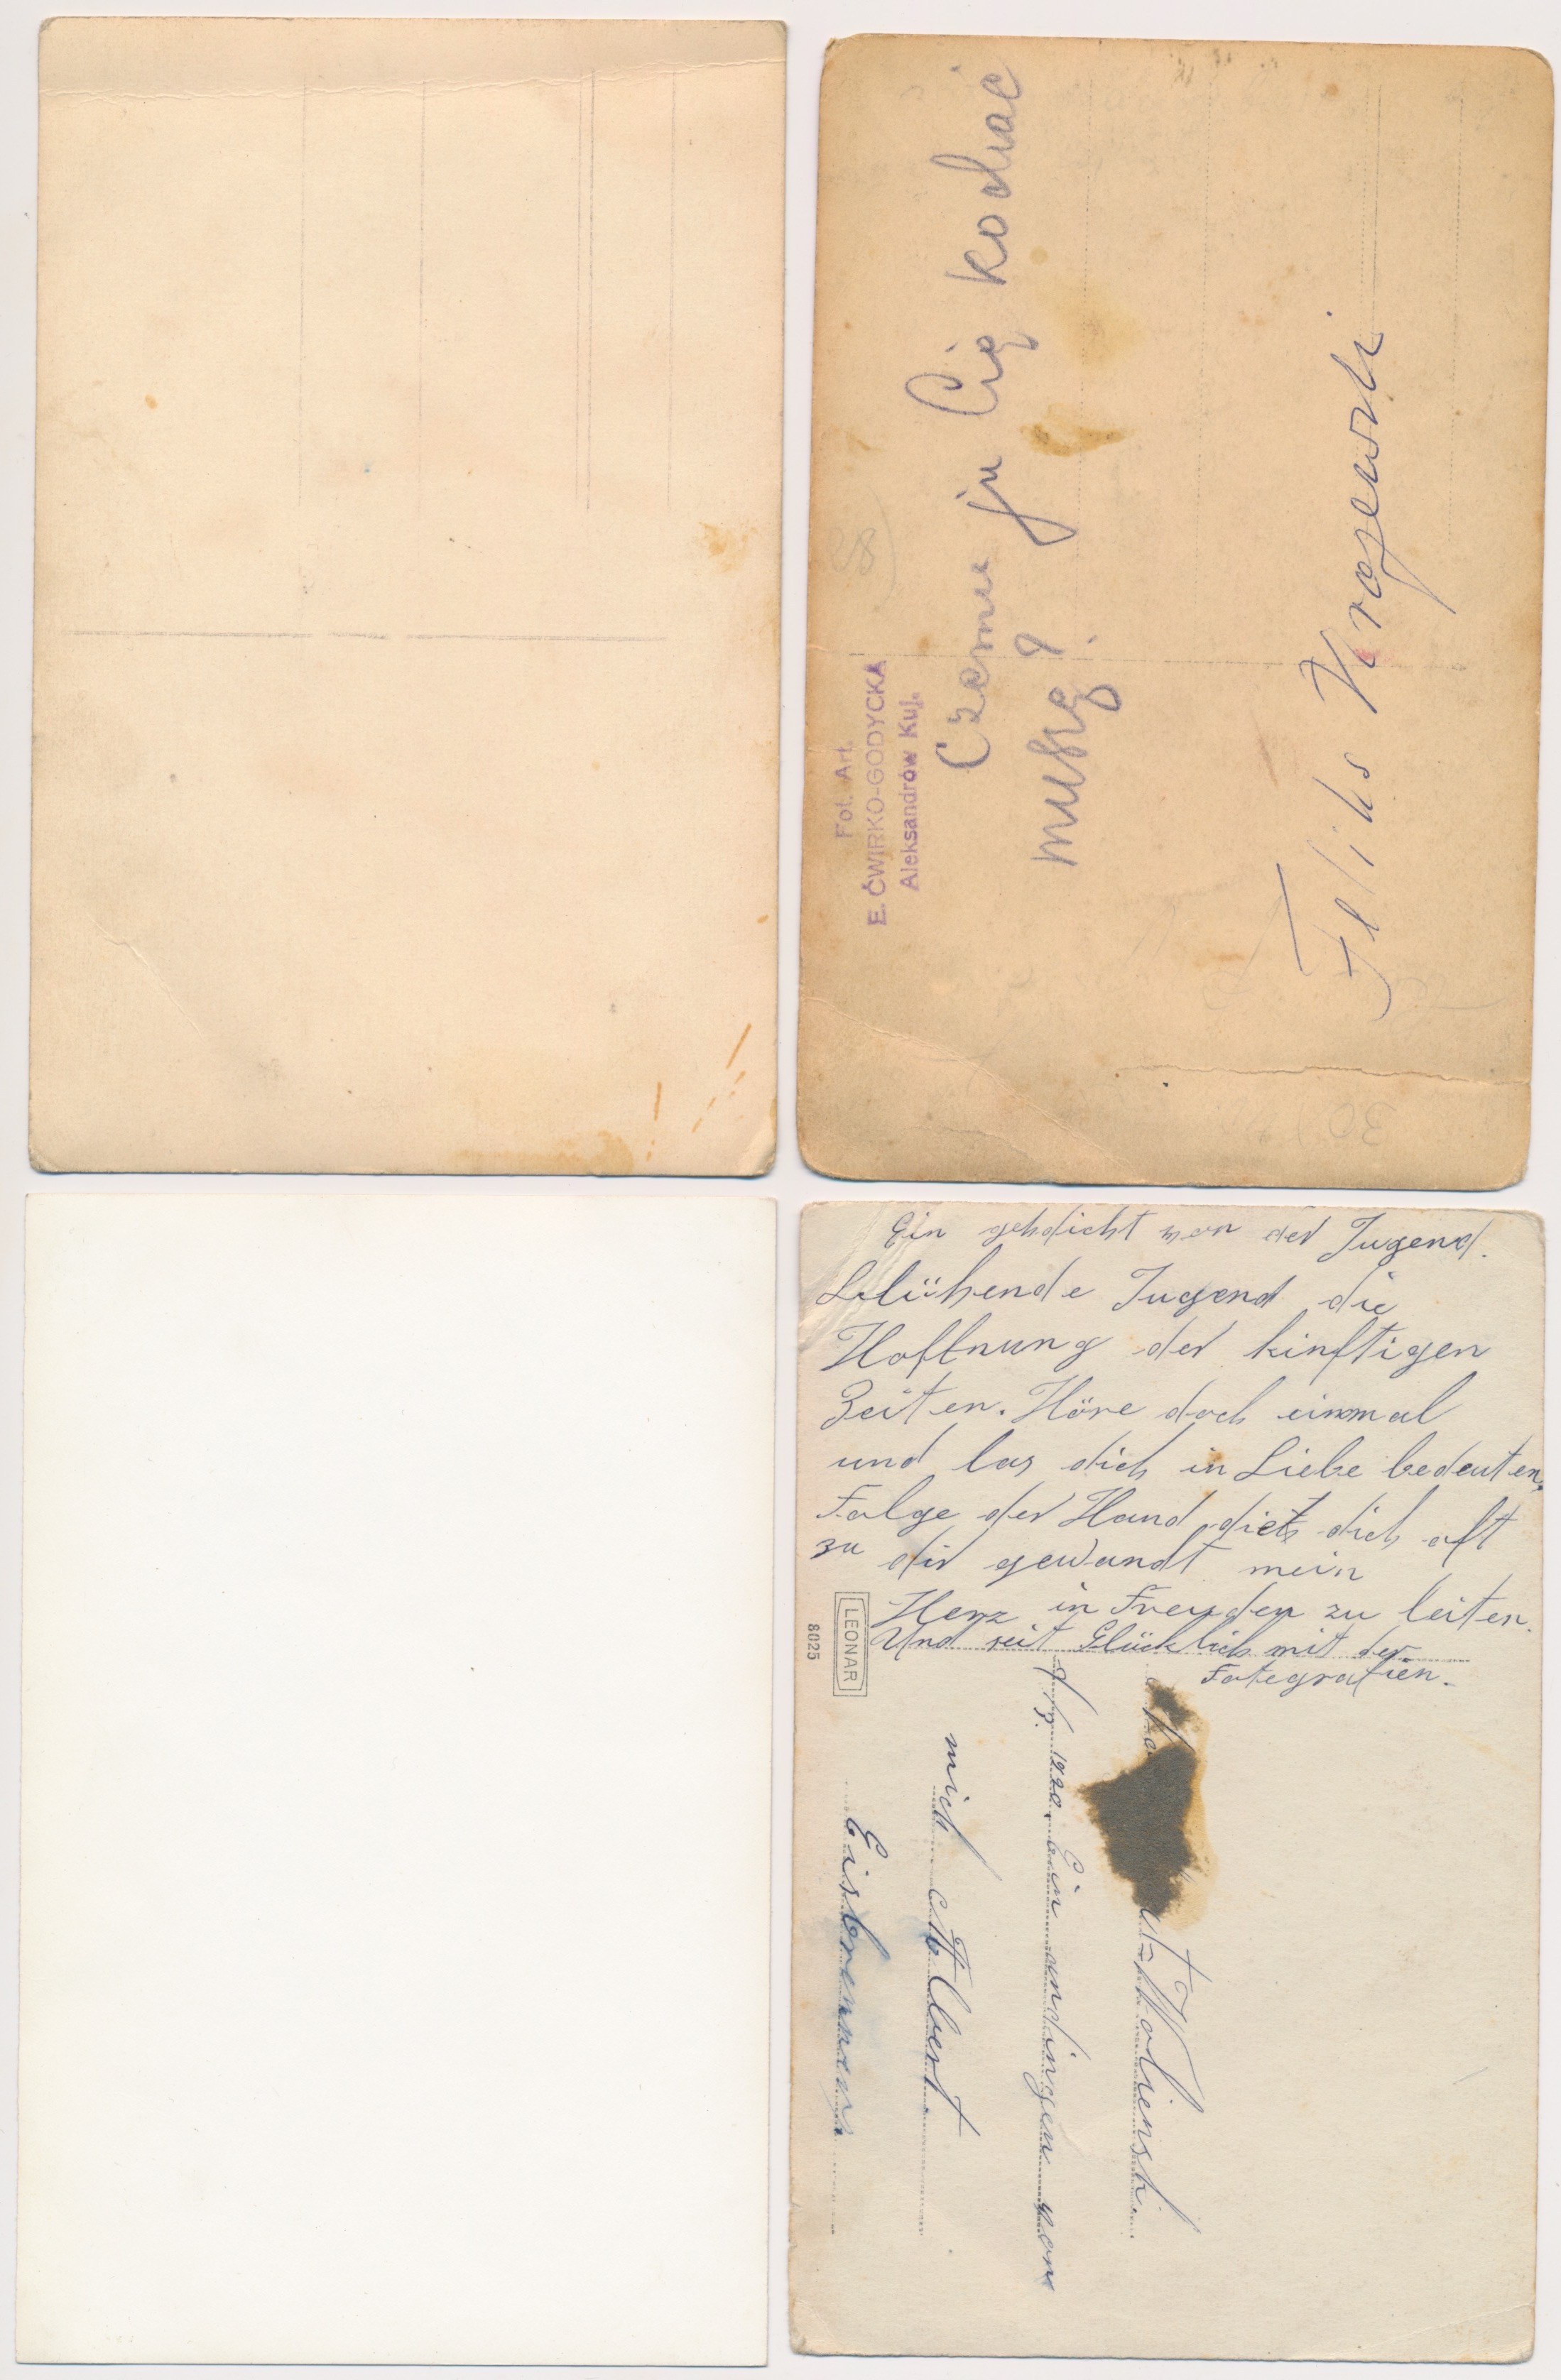 Fot. Art.
E. ĆWIRKO-GODYCKA
Aleksandrów Kuj.
Czemu ja Cię kochać
muszę?
Feliks Krajewski
Ein gehdicht von der Jugend.
Blühende Jugend die
Hoffnung der kinftigen
Zeiten. Höre doch einmal
und las dich in Liebe bedeuten,
Folge der Hand die dich oft
zu dir gewandt mein
Herz in Freuden zu leiten.
Und seit Glücklich mit der
Fotegrafien.
LEONAR
8025
1920. Ein andingen von
mich Albert
Eisbrenner